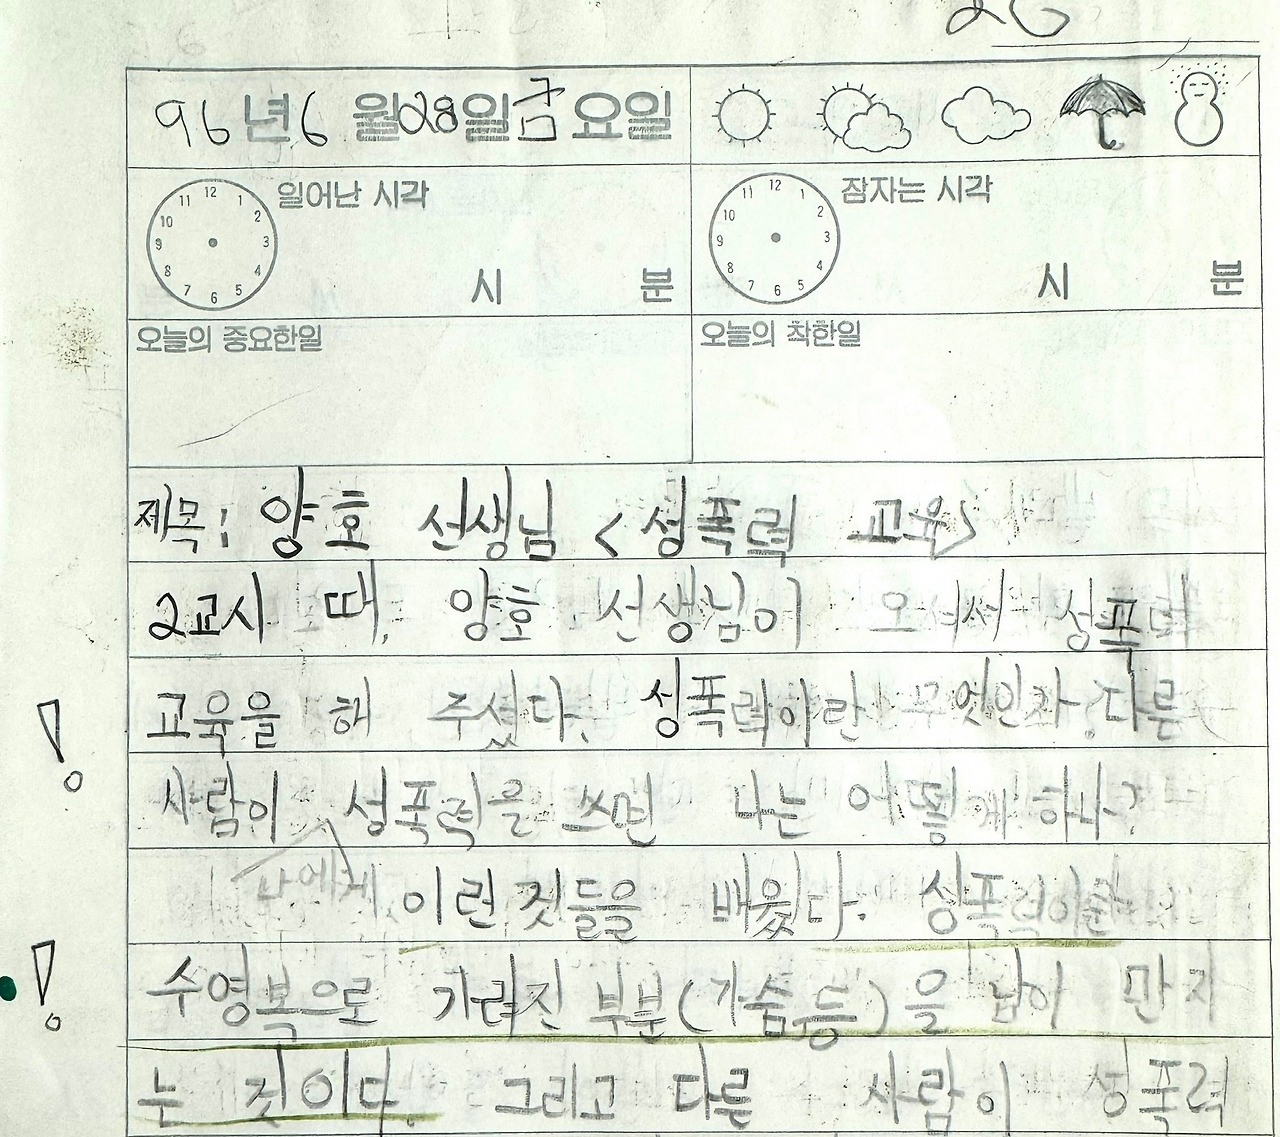 26
96년 6월 28일 금요일
일어난 시각
시 분
잠자는 시각
시 분
오늘의 중요한일
오늘의 착한일
제목: 양호 선생님 <성폭력 교육>
2교시 때, 양호 선생님이 오셔서 성폭력
교육을 해 주셨다. 성폭력이란 무엇인가? 다른
사람이 성폭력을 쓰면 나는 어떻게 하나?
나에게
이런 것들을 배웠다. 성폭력이란
수영복으로 가려진 부분(가슴 등)을 남이 만지
는 것이다. 그리고 다른 사람이 성폭력